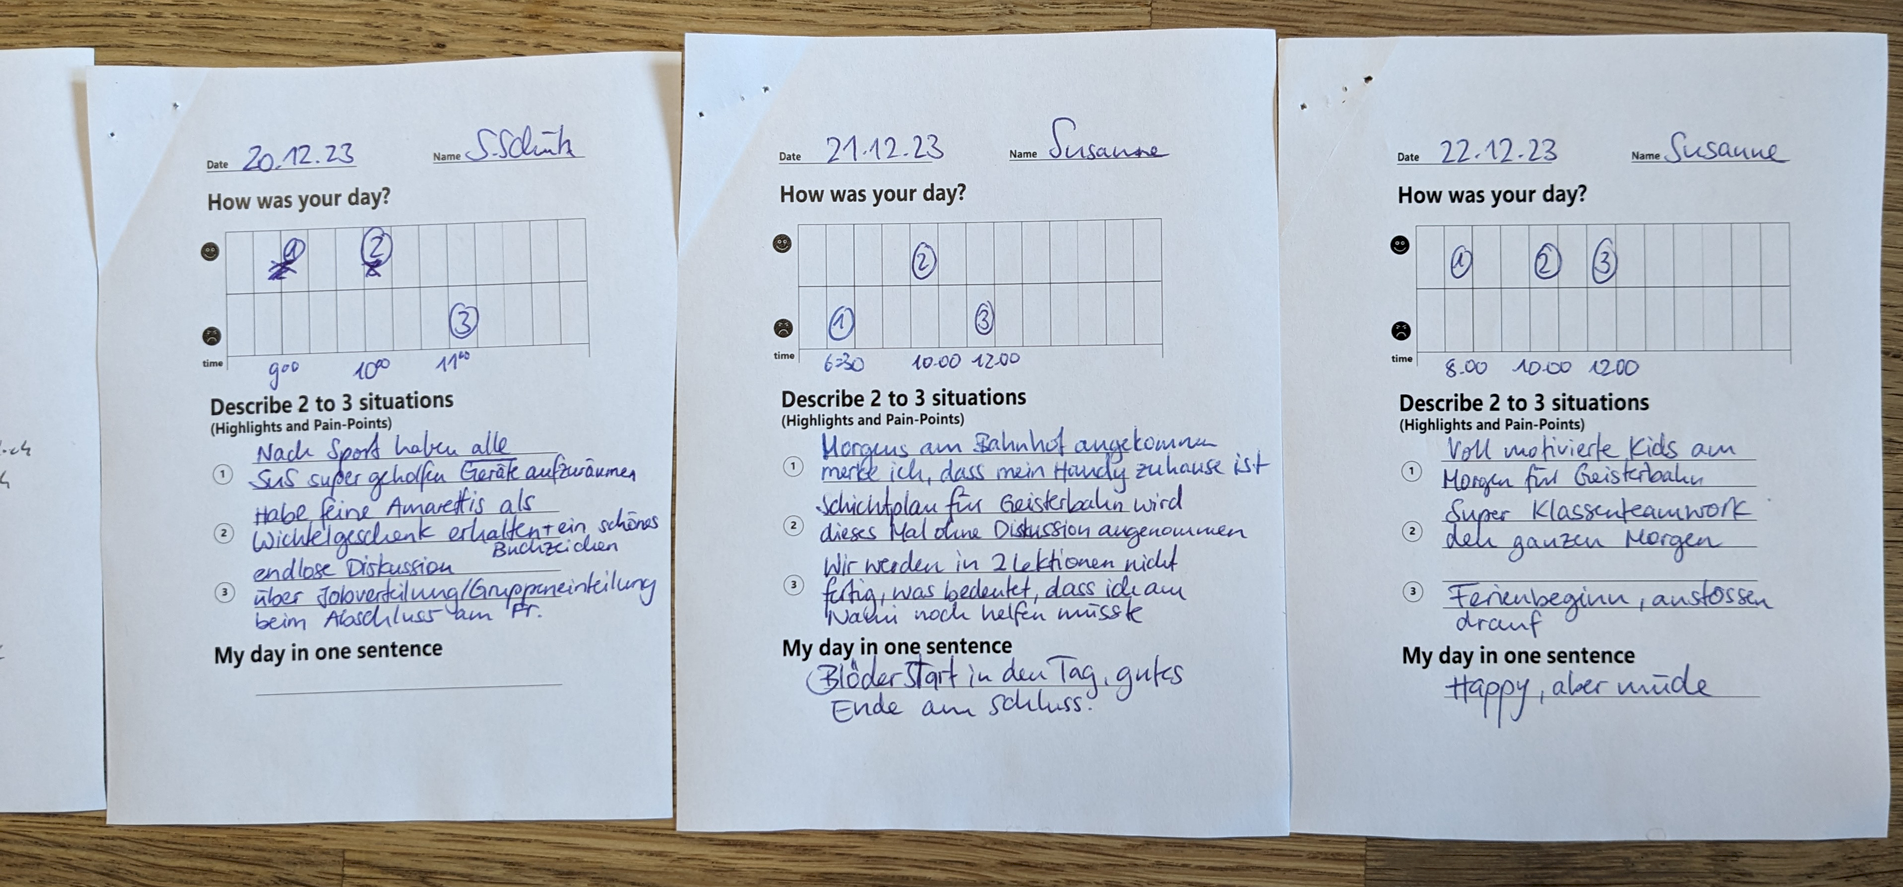 Date 20.12.23 Name S.Schütz
How was your day?
1 2
3
time 9⁰⁰ 10⁰⁰ 11⁰⁰
Describe 2 to 3 situations
(Highlights and Pain-Points)
Nach Sport haben alle
1 SuS super geholfen Geräte aufzuräumen
Habe feine Amarettis als
2 Wichtelgeschenk erhalten + ein schönes
Buchzeichen
endlose Diskussion
3 über Jobverteilung/Gruppeneinteilung
beim Abschluss am Fr.
My day in one sentence
Date 21.12.23 Name Susanne
How was your day?
2
1 3
time 6:30 10.00 12.00
Describe 2 to 3 situations
(Highlights and Pain-Points)
Morgens am Bahnhof angekommen
1 merke ich, dass mein Handy zuhause ist
Schichtplan für Geisterbahn wird
2 dieses Mal ohne Diskussion angenommen
Wir werden in 2 Lektionen nicht
3 fertig, was bedeutet, dass ich am
Nami noch helfen müsste
My day in one sentence
Blöder Start in den Tag, gutes
Ende am Schluss.
Date 22.12.23 Name Susanne
How was your day?
1 2 3
time 8.00 10.00 12.00
Describe 2 to 3 situations
(Highlights and Pain-Points)
Voll motivierte Kids am
1 Morgen für Geisterbahn
Super Klassenteamwork
2 den ganzen Morgen
3 Ferienbeginn, anstossen
drauf
My day in one sentence
Happy, aber müde